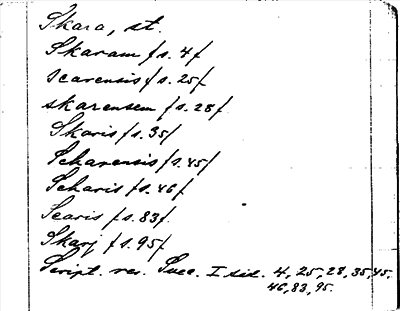 Skara, st.
Skaram /s. 4/
scarensis /s. 25/
skarensem /s. 28/
Skaris /s. 35/
Scharensis /s. 45/
Scharis /s. 46/
Scaris /s. 83/
Skarj /s. 95/
Script. rer. Suec. I sid. 4, 25, 28, 35, 45,
46, 83, 95.